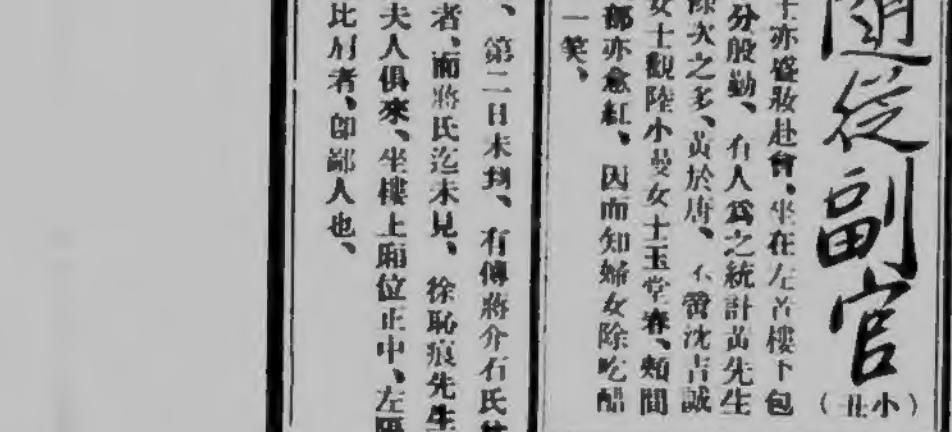 隨從副官
（小丑）
士亦盛妝赴會、坐在左首樓下包
分殷勤、有人爲之統計黃先生
餘次之多、黃於唐、不啻沈吉誠
女士觀陸小曼女士玉堂春、頰間
鄧亦愈紅、因而知婦女除吃醋
一笑、
、第二日未到、有傳蔣介石氏
者、而蔣氏迄未見、徐恥痕先生
夫人俱來、坐樓上廂位正中、左隔
比肩者、卽鄙人也、